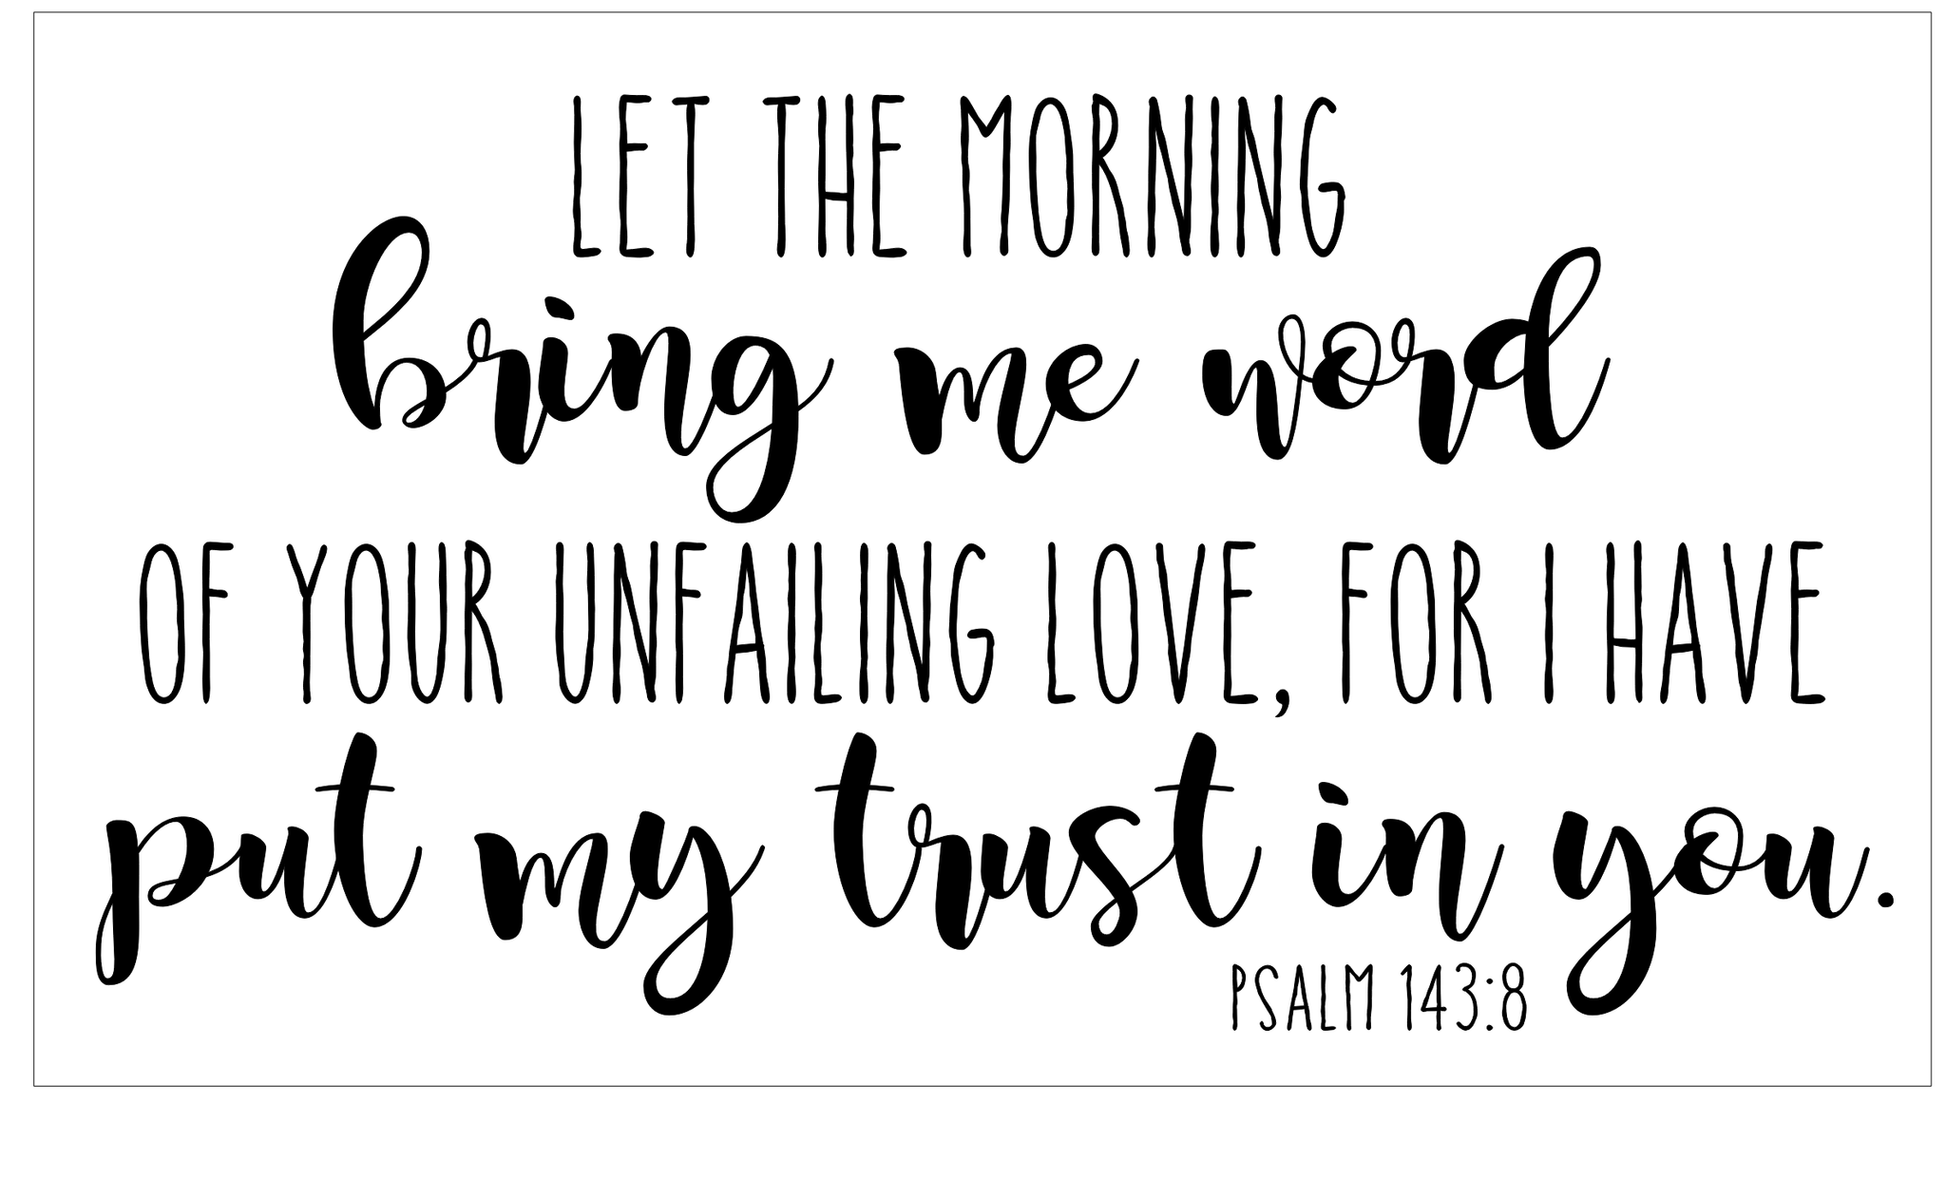 LET THE MORNING
bring me word
OF YOUR UNFAILING LOVE, FOR I HAVE
put my trust in you.
PSALM 143:8